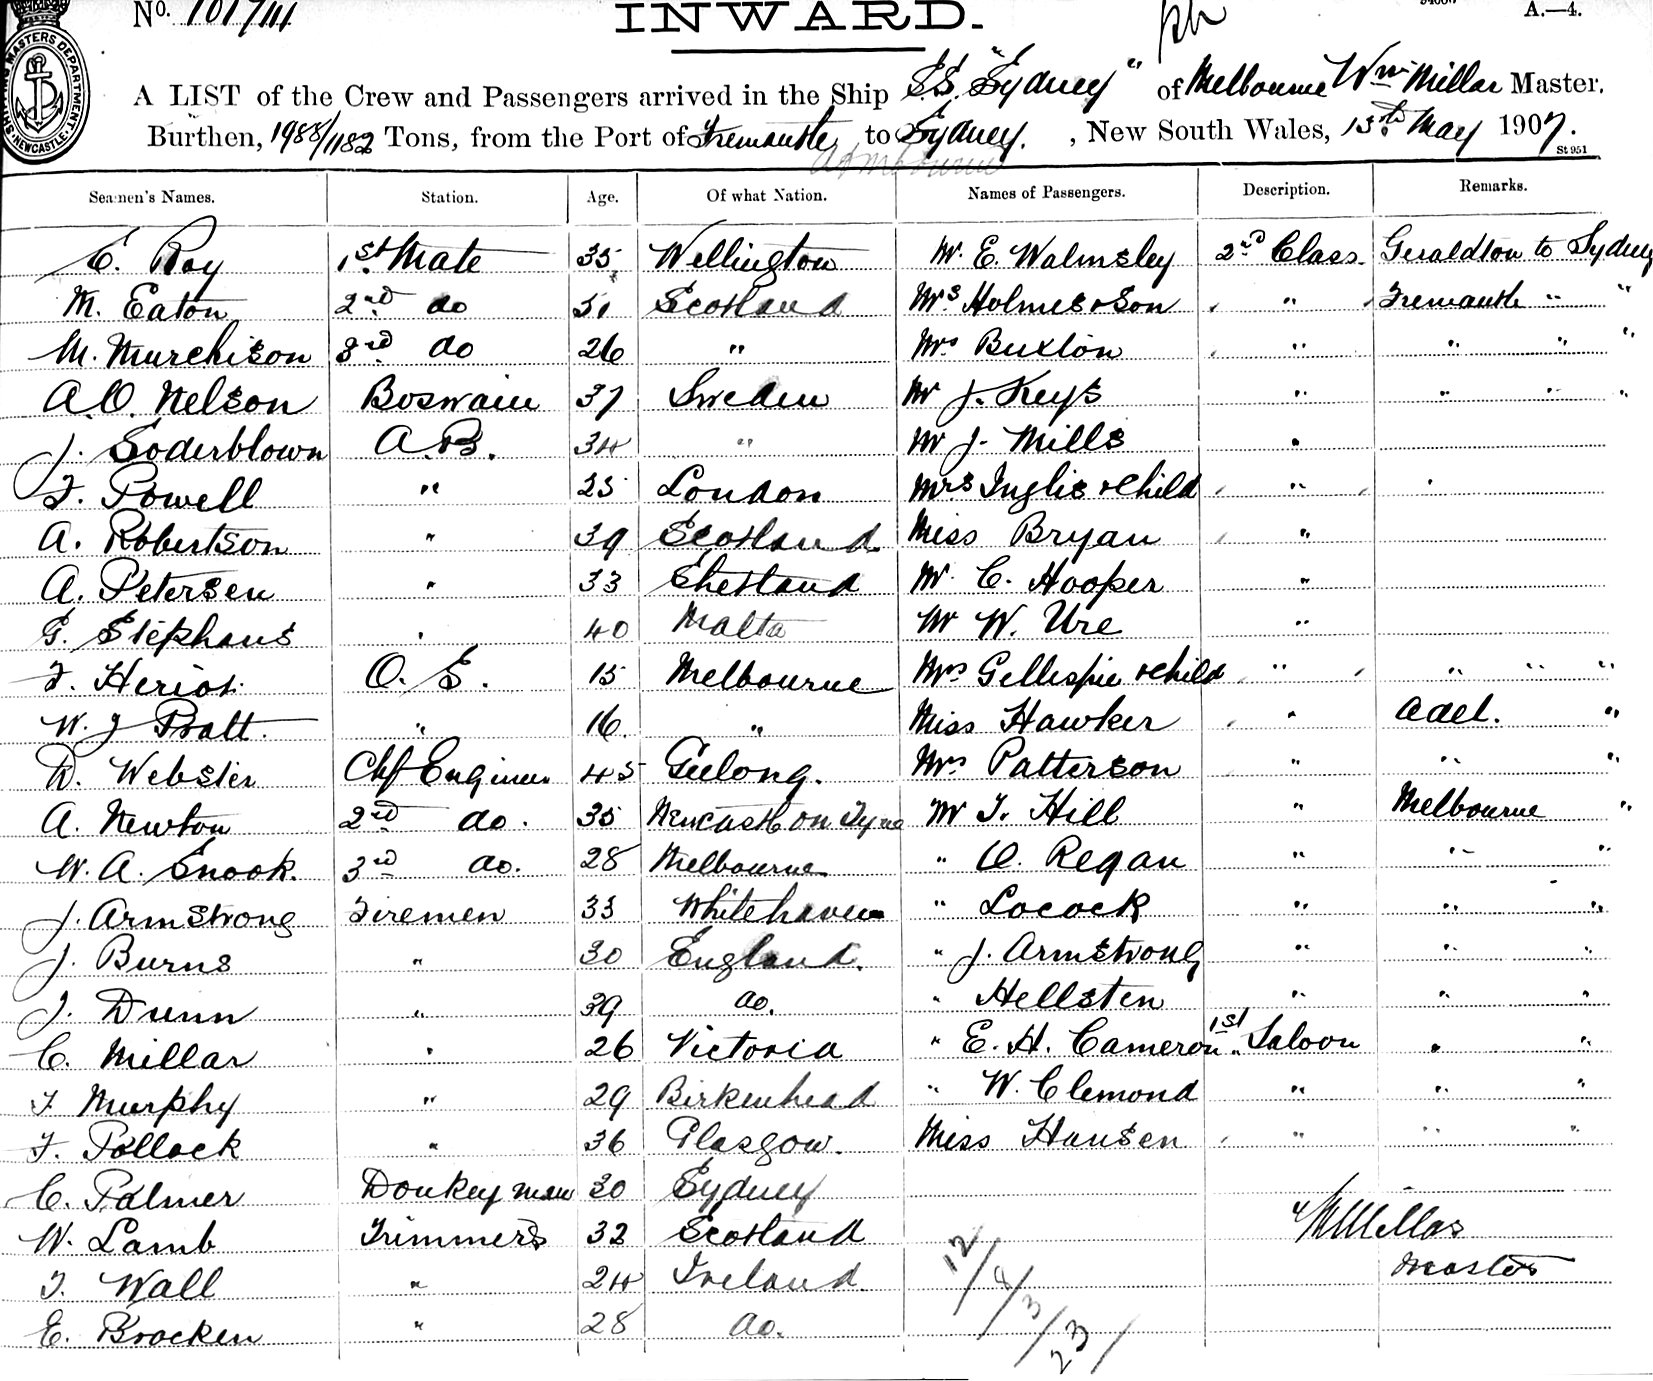 No. 101/111
INWARD.
A.—4.
A LIST of the Crew and Passengers arrived in the Ship S.S. "Sydney" of Melbourne Wm Millar Master.
Burthen, 1988/1182 Tons, from the Port of Fremantle to Sydney. , New South Wales, 13th May 1907.
St 951
Seamen's Names. Station. Age. Of what Nation. Names of Passengers. Description. Remarks.
E. Roy 1st Mate 35 Wellington Mr. E. Walmsley 2nd Class Geraldton to Sydney
M. Eaton 2nd do 51 Scotland Mrs Holmes & Son " " Fremantle " "
M. Murchison 3rd do 26 " Mrs Buxton " " " "
A.O. Nelson Boswain 37 Sweden Mr J. Keys " " " "
J. Soderblown A.B. 34 " Mr J. Mills "
F. Powell " 25 London Mrs Inglis & Child " "
A. Robertson " 39 Scotland Miss Bryan "
A. Petersen " 33 Shetland Mr. C. Hooper "
G. Stephans " 40 Malta Mr W. Ure "
F. Heriot. O.S. 15 Melbourne Mrs Gellespie & Child " " " "
W. J Pratt. " 16. " Miss Hawker " Adel. "
D. Webster Chf Engineer 45 Geelong. Mrs Patterson " " "
A. Newton 2nd do. 35 Newcastle on Tyne Mr T. Hill " Melbourne "
W. A. Snook. 3rd do. 28 Melbourne " O. Regan " " "
J. Armstrong Firemen 33 Whitehaven " Locock " " "
J. Burns " 30 England. " J. Armstrong " " "
J. Dunn " 39 do. " Hellsten " " "
C. Millar " 26 Victoria " E. H. Cameron 1st Saloon " "
F Murphy " 29 Birkenhead " W. Clemond " " "
F. Pollock " 36 Glasgow. Miss Hansen " " "
C. Palmer Donkey man 30 Sydney
W. Lamb Trimmers 32 Scotland WMillar
F. Wall " 24 Ireland. Master
E. Brocken " 28 do.
12/8/3/23/